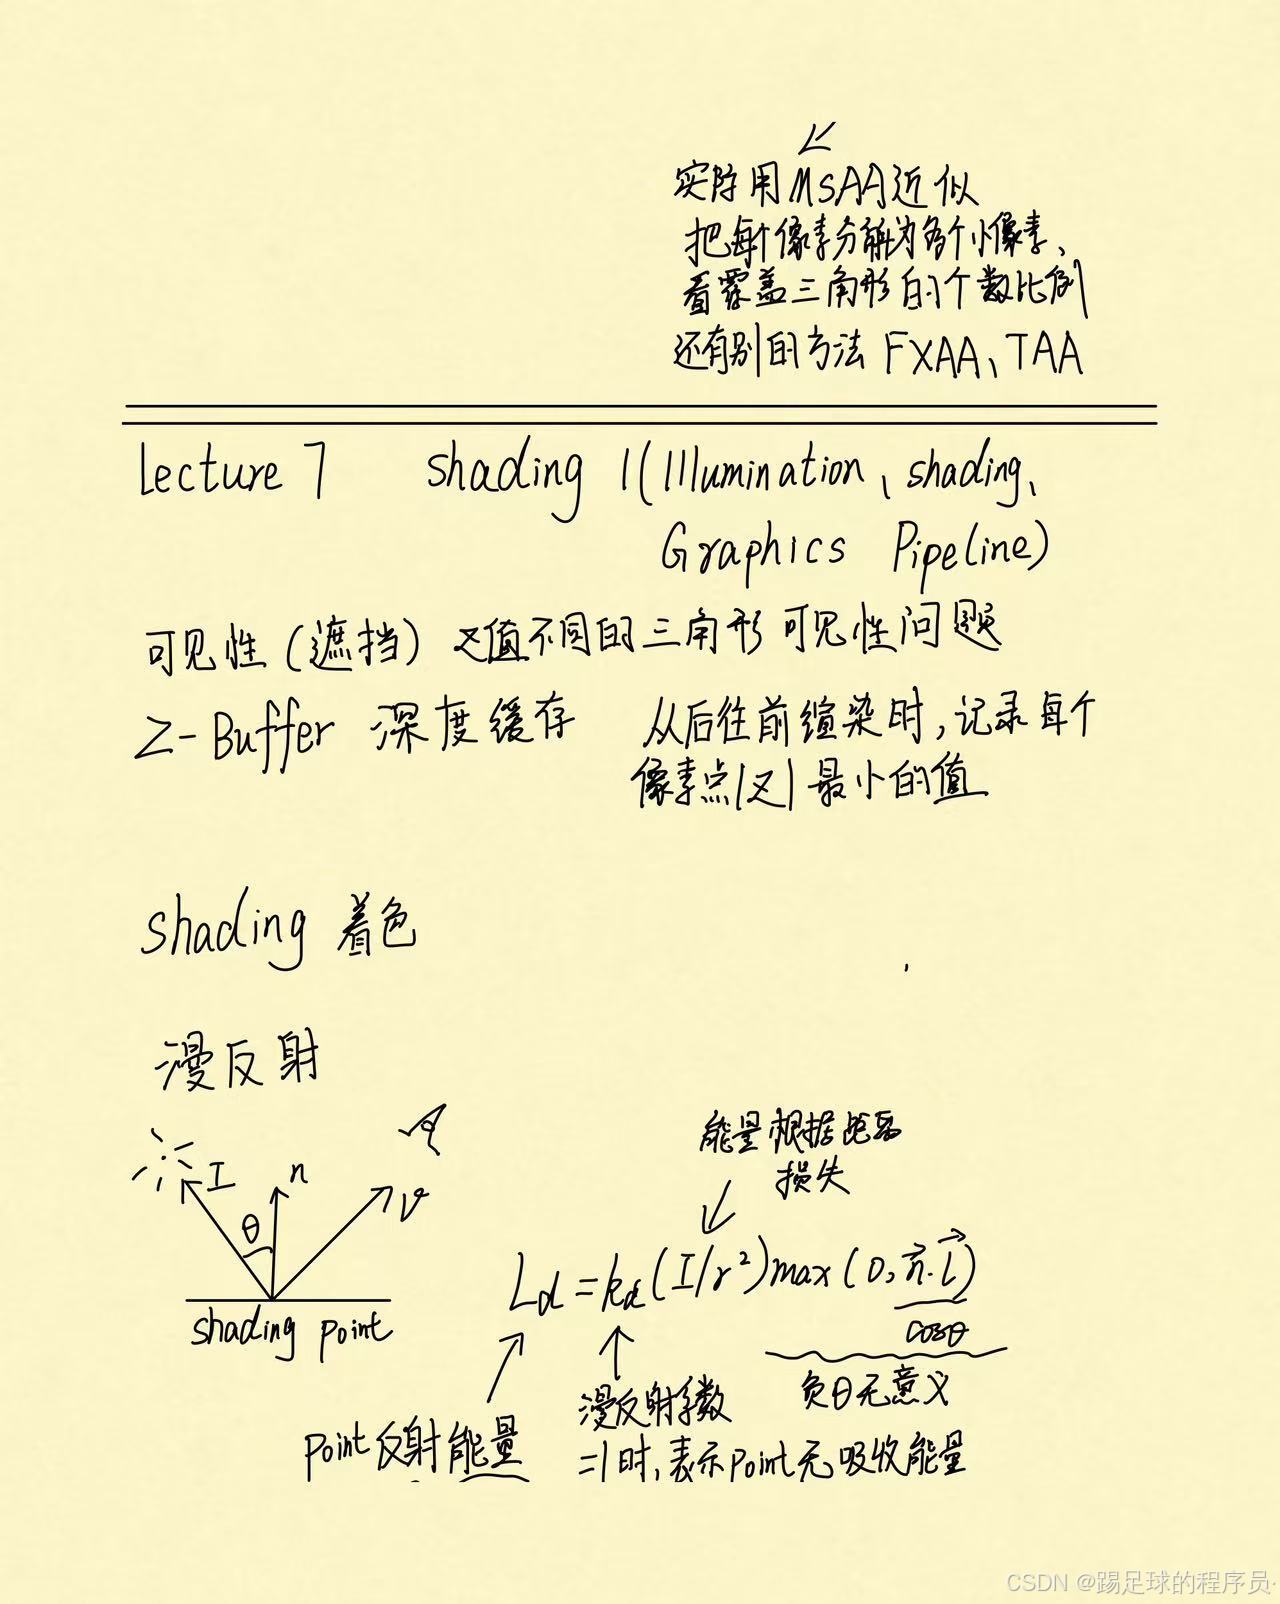 实际用MSAA近似
把每个像素分解为多个小像素、
看覆盖三角形的个数比例
还有别的方法 FXAA、TAA
Lecture 7 shading 1(Illumination、shading、
Graphics Pipeline)
可见性(遮挡) Z值不同的三角形可见性问题
Z-Buffer 深度缓存 从后往前渲染时,记录每个
像素点|Z|最小的值
shading 着色
漫反射
能量根据距离
损失
I n v
θ
shading point
Ld=kd(I/r²)max(0,n⃗.l⃗)
cosθ
负θ无意义
漫反射系数
point反射能量
=1时,表示point无吸收能量
CSDN @踢足球的程序员